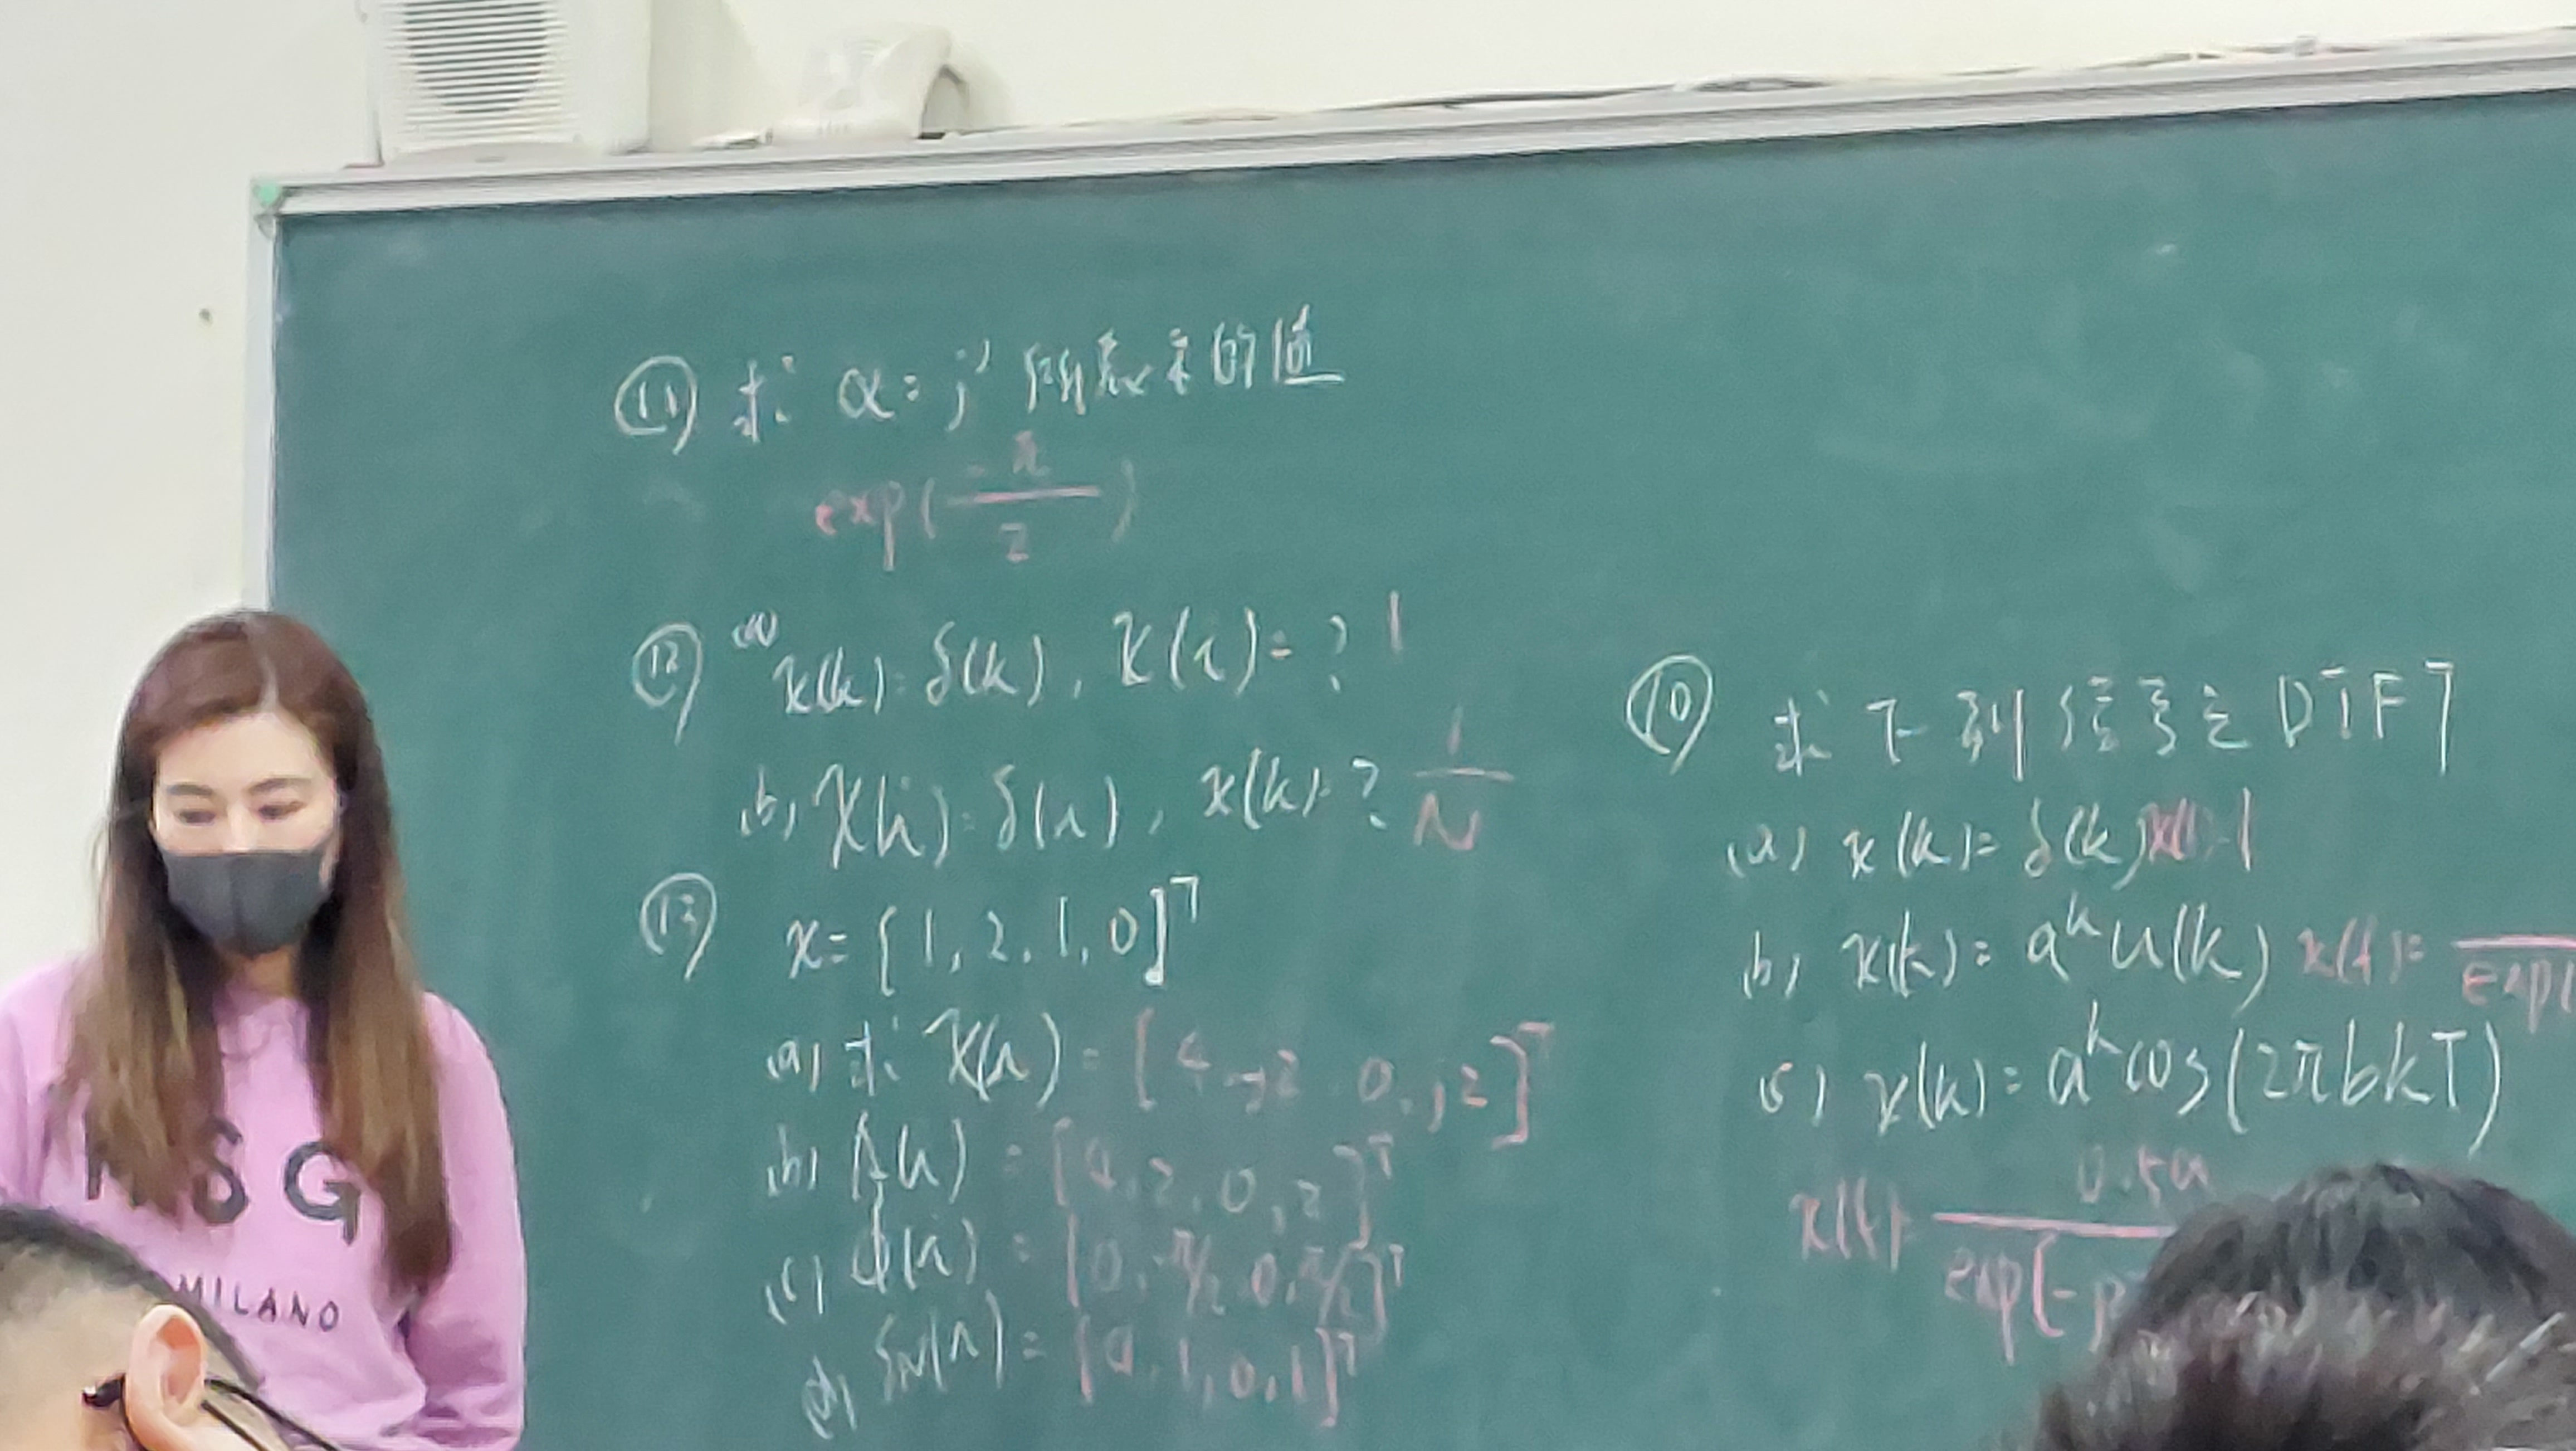 ⑪ 求 α = j^j 所表示的值
exp(-π/2)
⑫ (a) x(k) = δ(k), X(i) = ? 1
(b) X(i) = δ(i), x(k) = ? 1/N
⑬ x = [1, 2, 1, 0]^T
(a) 求 X(i) = [4, -j2, 0, j2]^T
(b) A(i) = [4, 2, 0, 2]^T
(c) φ(i) = [0, -π/2, 0, π/2]^T
(d) S_N(i) = [4, 1, 0, 1]^T
⑩ 求下列信号之 DTFT
(a) x(k) = δ(k) X(f) = 1
(b) x(k) = a^k u(k) X(f) =
exp(
(c) x(k) = a^k cos(2πbkT)
X(f) =
0.5a
exp(-j
MSG
MILANO